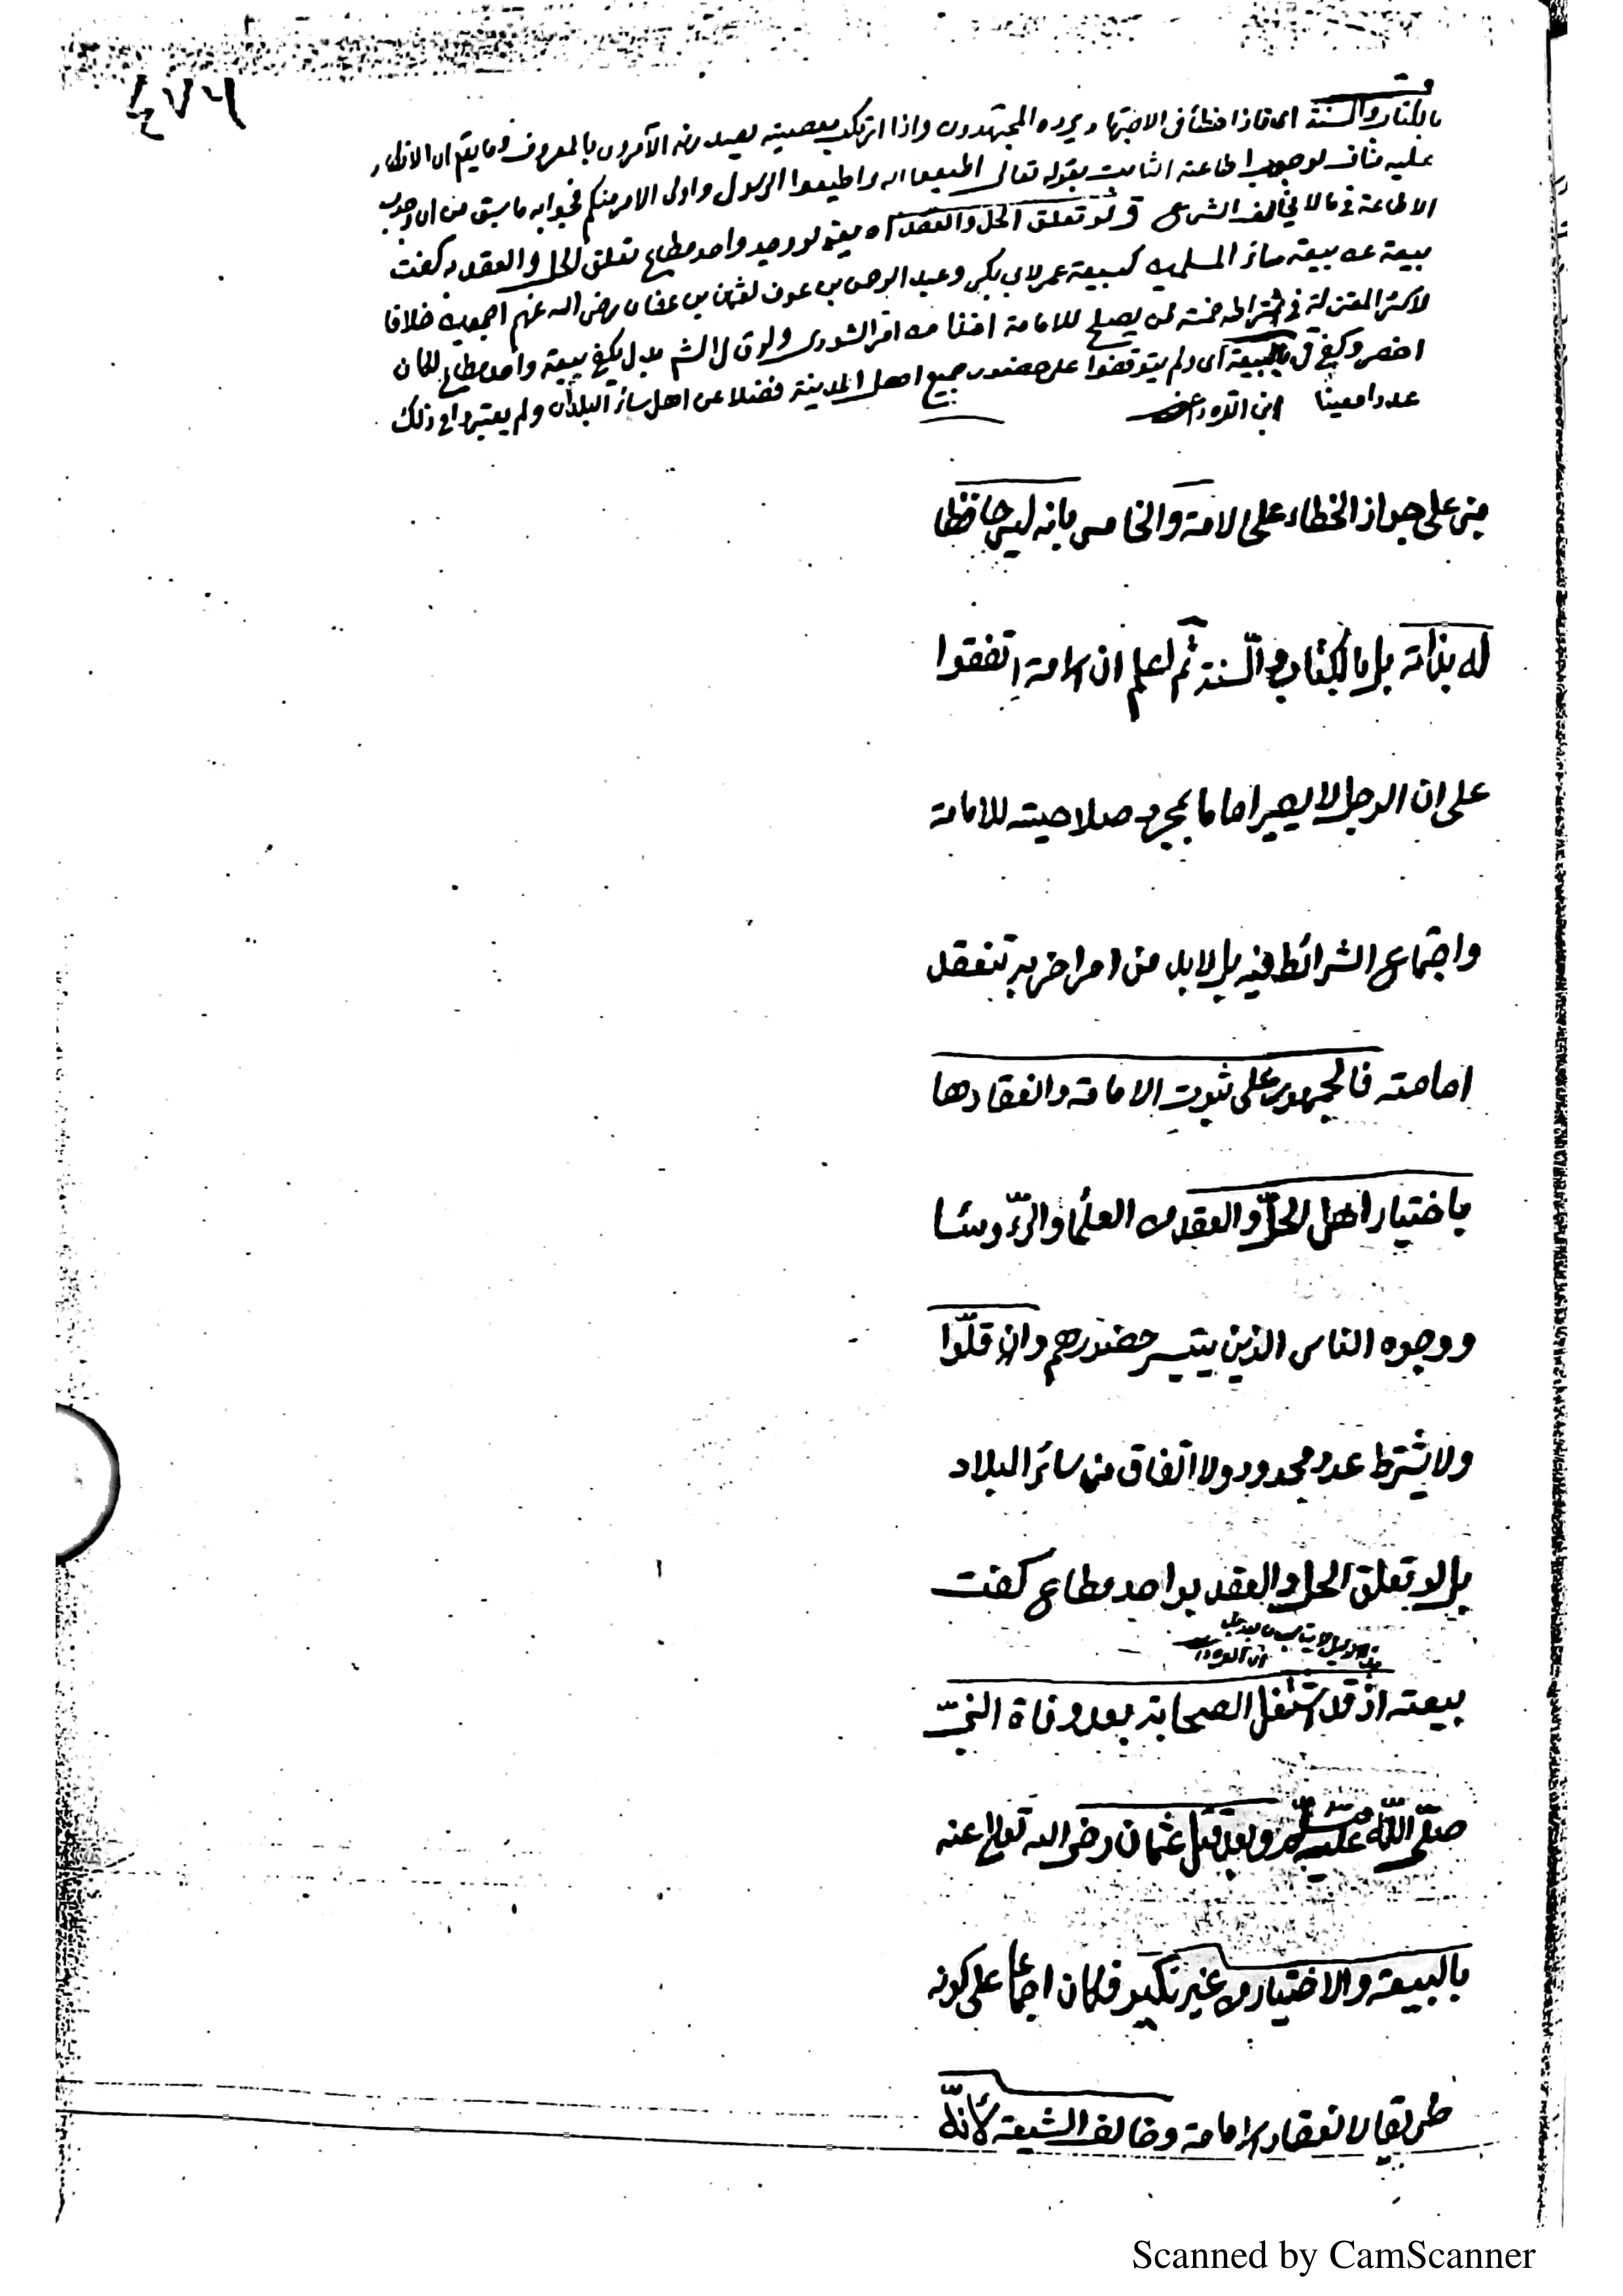 ٤٧٦
بالكتاب والسنة اى فاذا اخطأ فى الاجتهاد يرده المجتهدون واذا ارتكب معصيته يصده الآمرون بالمعروف وما يقع ان الانكار
عليه مناف لوجوب اطاعته الثابت بقوله تعالى اطيعوا الله واطيعوا الرسول واولى الامر منكم فجوابه ما سبق من ان وجوب
الاطاعة فى ما لا يخالف الشرع قوله لو تعلق الحل والعقد اه يعنى لو وجد واحد مطاع تعلق الحل والعقد به كفت
بيعته عن بيعة سائر المسلمين كبيعة عمر لابى بكر وعبد الرحمن بن عوف لعثمان بن عفان رضى الله عنهم اجمعين خلافا
لاكثر المعتزلة فى اشتراط خمسة ممن يصلح للامامة اخذا من امر الشورى ولو قال الش بدل يكفى بيعة واحد مطاع لكان
اخصر وكفى بالبيعة اى ولم يتوقفوا على حضور جميع اهل المدينة فضلا عن اهل سائر البلدان ولم يعتبروا فى ذلك
عددا معينا ابن القره داغى
مبنى على جواز الخطاء على الامة والخامس بانه ليس حافظا
له بذاته بل بالكتاب والسنة ثم اعلم ان الامة اتفقوا
على ان الرجل لا يصير اماما بمجرد صلاحيته للامامة
واجتماع الشرائط فيه بل لابد من امر اخر به تنعقد
امامته فالجمهور على ثبوت الامامة وانعقادها
باختيار اهل الحلّ والعقد من العلما والرّءوسا
ووجوه الناس الذين يتيسر حضورهم وان قلّوا
ولا يشترط عدد محدود ولا اتفاق من سائر البلاد
بل لو تعلق الحل والعقد بواحد مطاع كفت
ابن القره داغى
بيعته اذ قد اشتغل الصحابة بعد وفاة النبىّ
صلّى اللّٰه عليه وسلّم وبعد قتل عثمان رضى الله تعالى عنه
بالبيعة والاختيار من غير نكير فكان اجماعا على كونه
طريقا لانعقاد الامامة وخالف الشيعة لأنّه
Scanned by CamScanner